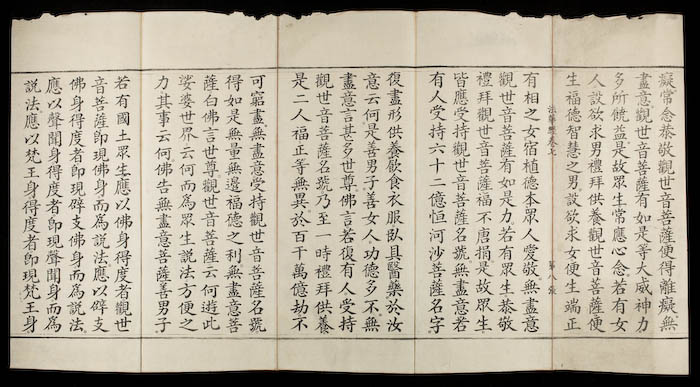 癡常念恭敬觀世音菩薩便得離癡無
盡意觀世音菩薩有如是等大威神力
多所饒益是故眾生常應心念若有女
人設欲求男禮拜供養觀世音菩薩便
生福德智慧之男設欲求女便生端正
法華經卷七 第八張
有相之女宿植德本眾人愛敬無盡意
觀世音菩薩有如是力若有眾生恭敬
禮拜觀世音菩薩福不唐捐是故眾生
皆應受持觀世音菩薩名號無盡意若
有人受持六十二億恒河沙菩薩名字
復盡形供養飲食衣服臥具醫藥於汝
意云何是善男子善女人功德多不無
盡意言甚多世尊佛言若復有人受持
觀世音菩薩名號乃至一時禮拜供養
是二人福正等無異於百千萬億劫不
可窮盡無盡意受持觀世音菩薩名號
得如是無量無邊福德之利無盡意菩
薩白佛言世尊觀世音菩薩云何遊此
娑婆世界云何而為眾生說法方便之
力其事云何佛告無盡意菩薩善男子
若有國土眾生應以佛身得度者觀世
音菩薩即現佛身而為說法應以辟支
佛身得度者即現辟支佛身而為說法
應以聲聞身得度者即現聲聞身而為
說法應以梵王身得度者即現梵王身